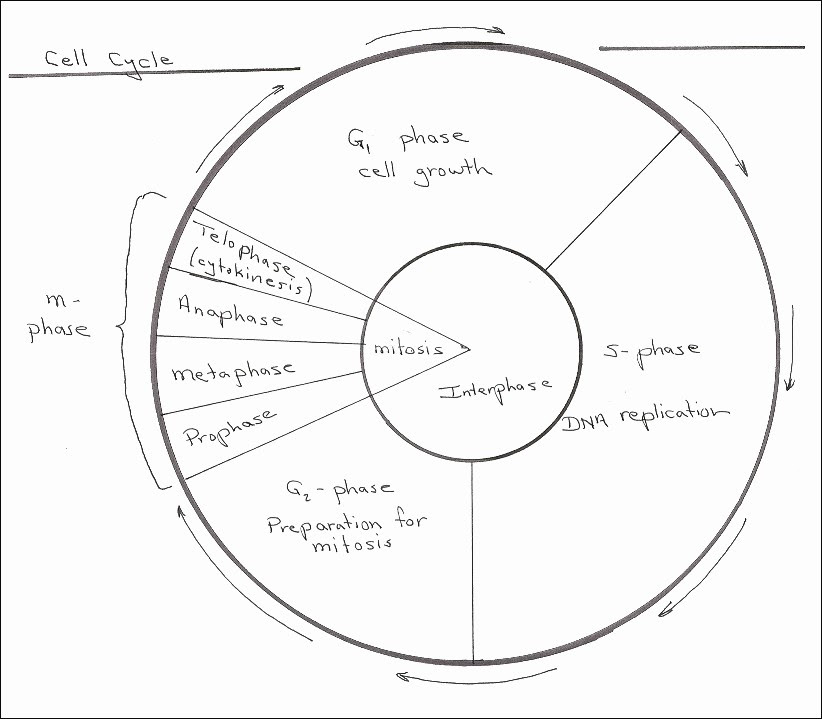 Cell Cycle
G₁ phase
cell growth
Telophase
(cytokinesis)
Anaphase
metaphase
Prophase
m-
phase
mitosis
Interphase
S-phase
DNA replication
G₂-phase
Preparation for
mitosis